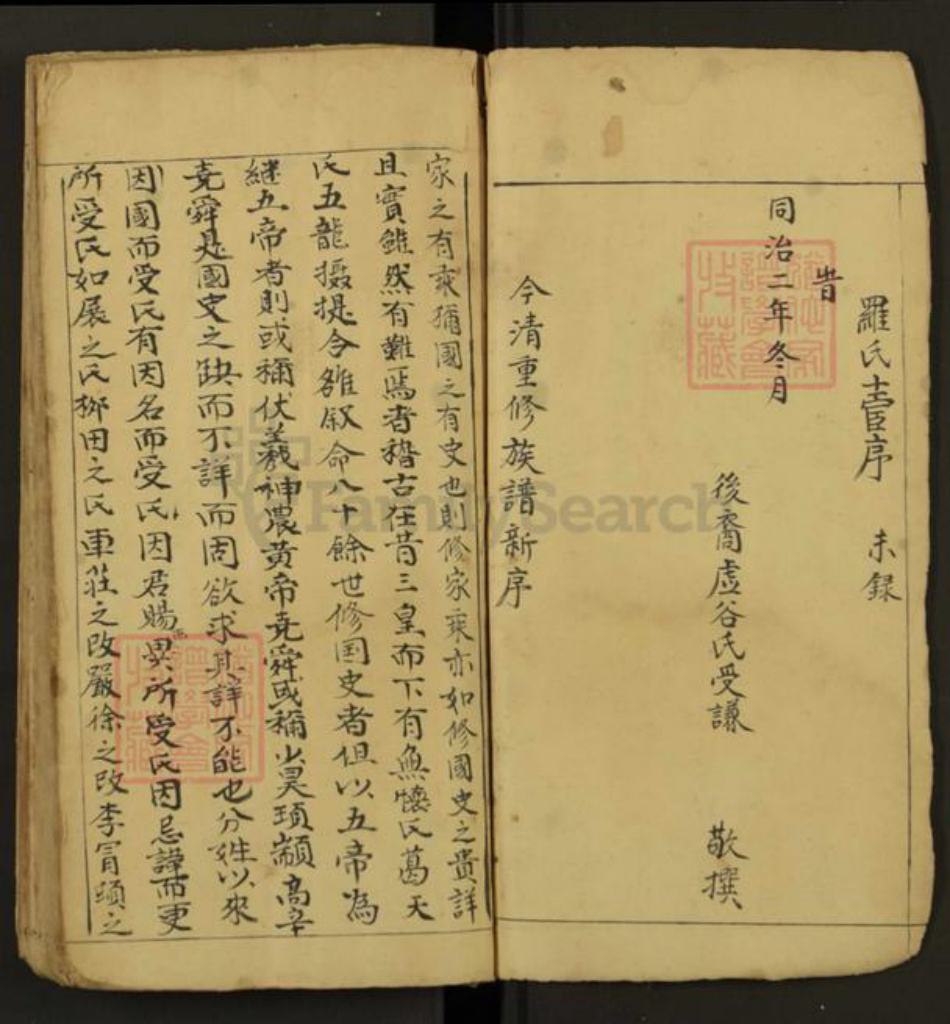 羅氏壹序 未録
旹
同治二年冬月
後裔虚谷氏受謙 敬撰
今清重修族譜新序
家之有乘猶國之有史也則修家乘亦如修國史之貴詳
且實雖然有難焉者稽古在昔三皇而下有無懷氏葛天
氏五龍攝提合雒叙命八十餘世修国史者但以五帝為
継五帝者則或稱伏羲神農黄帝尭舜或稱少昊頊顓高辛
尭舜是國史之缺而不詳而固欲求其詳不能也分姓以來
因國而受氏有因名而受氏因君賜異所受氏因忌諱而更
所受氏如展之氏栁田之氏車莊之改嚴徐之改李冒頭之
FamilySearch